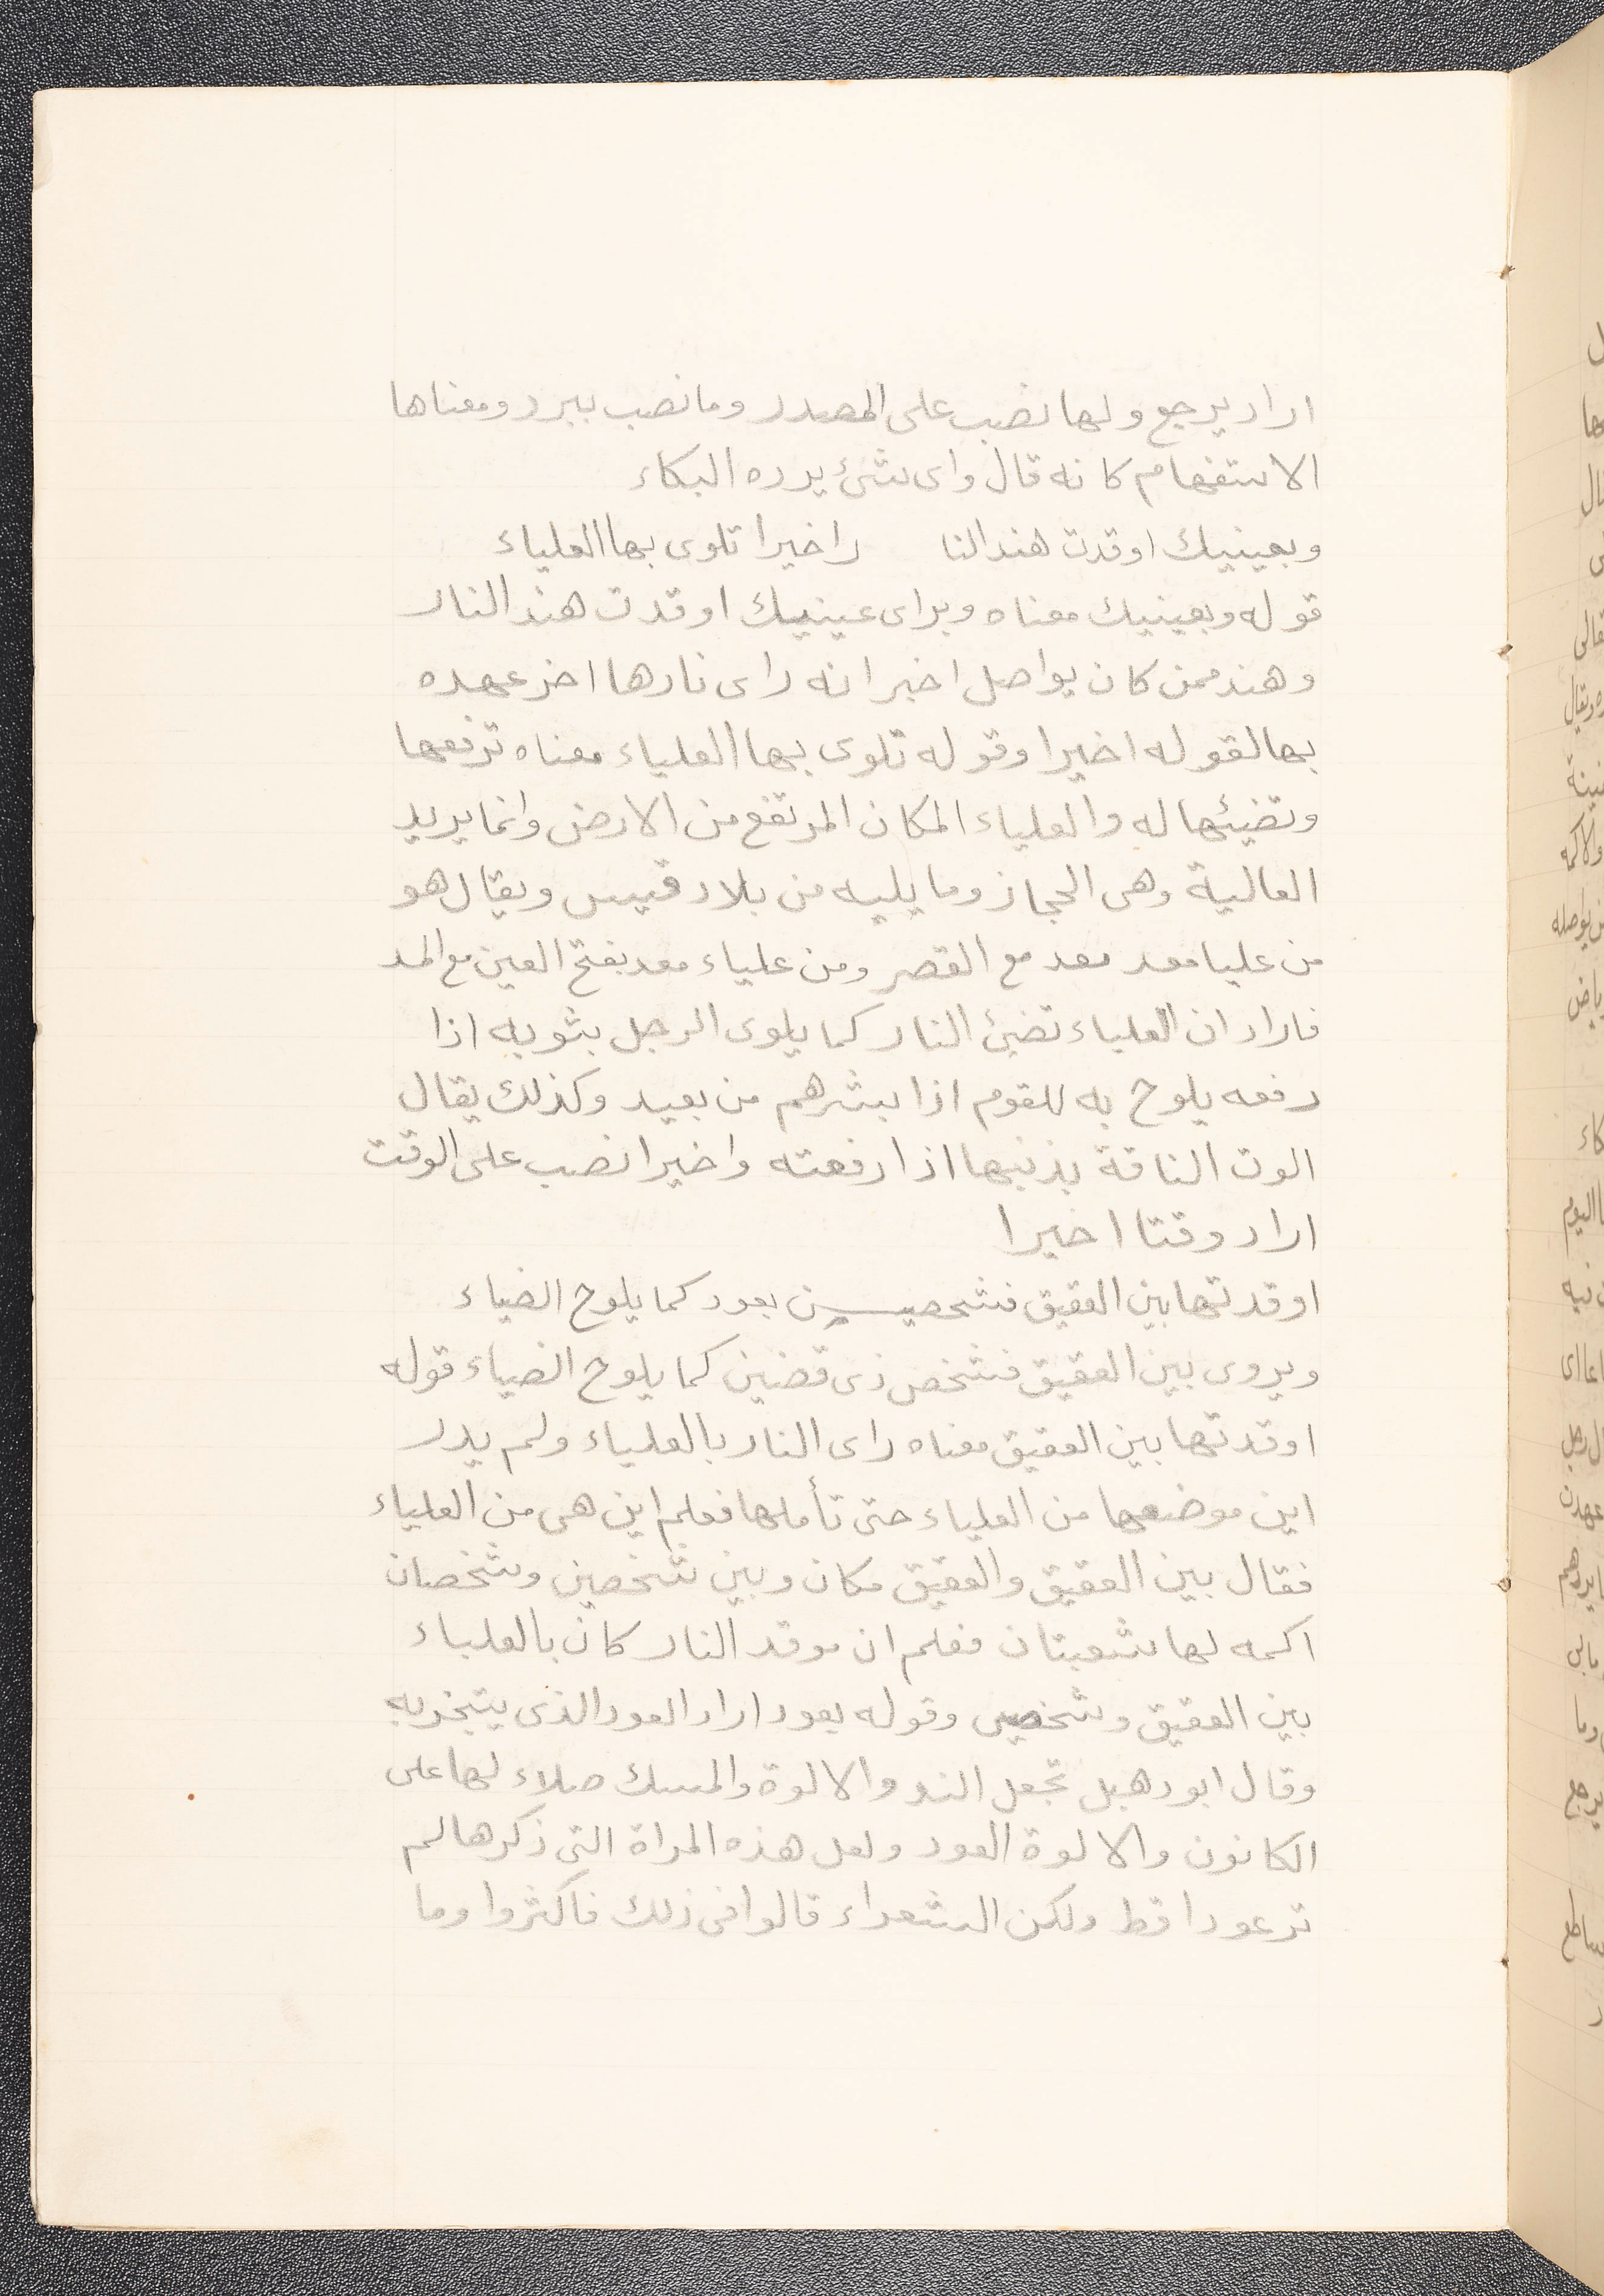 اراد يرجع ولها نصب على المصدر وما نصب ببرد ومعناها
الاستفهام كانه قال واى شئ يرده البكاء
وبعينيك اوقدت هند النا     ر اخيرا تلوى بها العلياء
قوله وبعينيك معناه وبراى عينيك اوقدت هند النار
وهند ممن كان يواصل اخبر انه راى نارها اخر عهده
بها لقوله اخيرا وقوله تلوى بها العلياء معناه ترفعها
وتضيئها له والعلياء المكان المرتفع من الارض وانما يريد
العالية وهى الحجاز وما يليه من بلاد قيس ويقال هو
من عليا معد معد مع القصر ومن علياء معد بفتح العين مع المد
فاراد ان العلياء تضئ النار كما يلوى الرجل بثوبه اذا
رفعه يلوح به للقوم اذا بشرهم من بعيد وكذلك يقال
الوت الناقة بذنبها اذا رفعته واخيرا نصب على الوقت
اراد وقتا اخيرا
اوقدتها بين العقيق فشخصين بعود كما يلوح الضياء
ويروى بين العقيق فشخص ذى قضين كما يلوح الضياء قوله
اوقدتها بين العقيق معناه راى النار بالعلياء ولم يدر
اين موضعها من العلياء حتى تأملها فعلم اين هى من العلياء
فقال بين العقيق والعقيق مكان وبين شخصين وشخصان
اكمه لها شعبتان فعلم ان موقد النار كان بالعلياء
بين العقيق وشخصين وقوله بعود اراد العود الذى يتبخر به
وقال ابو دهبل تجعل الند والالوة والمسك صلاء لها على
الكانون والالوة العود ولعل هذه المراة التى ذكرها لم
تر عودا قط ولكن الشعراء قالوا فى ذلك فاكثروا وما